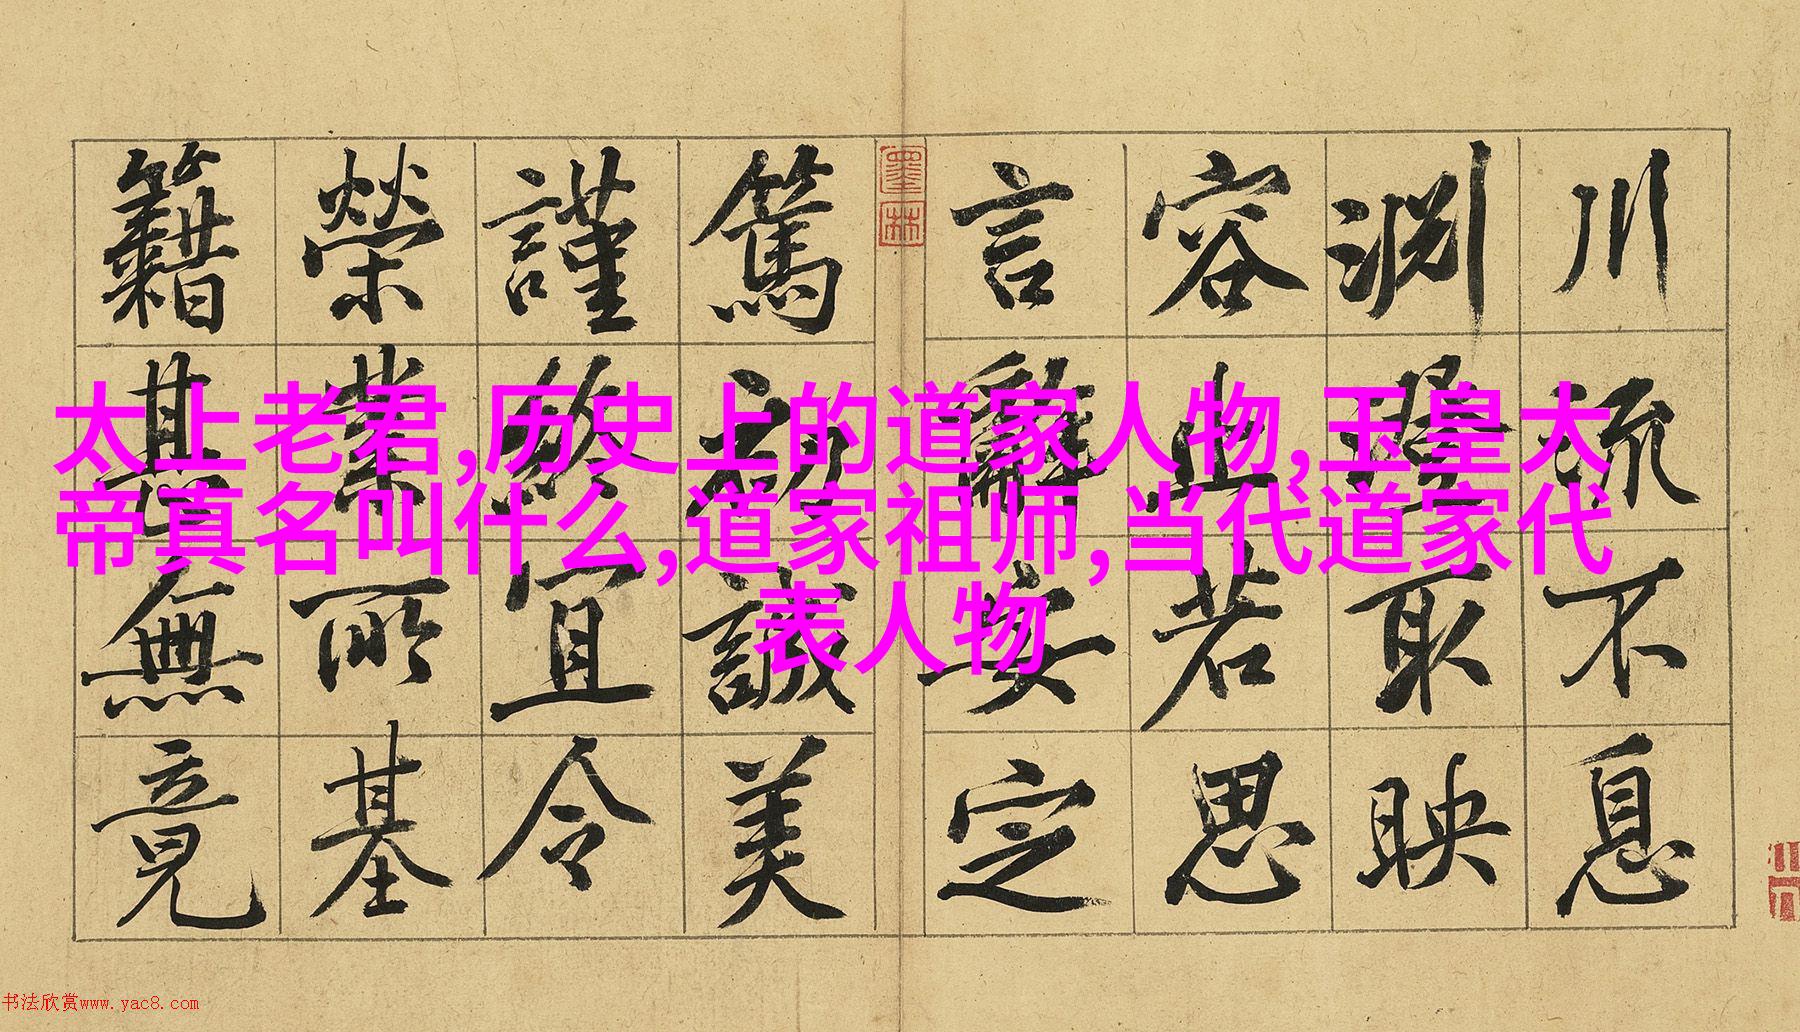 川流不息
淵澄取映
容止若思
言辭安定
篤初誠美
謹終宜令
榮業所基
籍甚無竟
墨林
太上老君,历史上的道家人物,玉皇大
帝真名叫什么,道家祖师,当代道家代
表人物
书法欣赏www.yac8.com